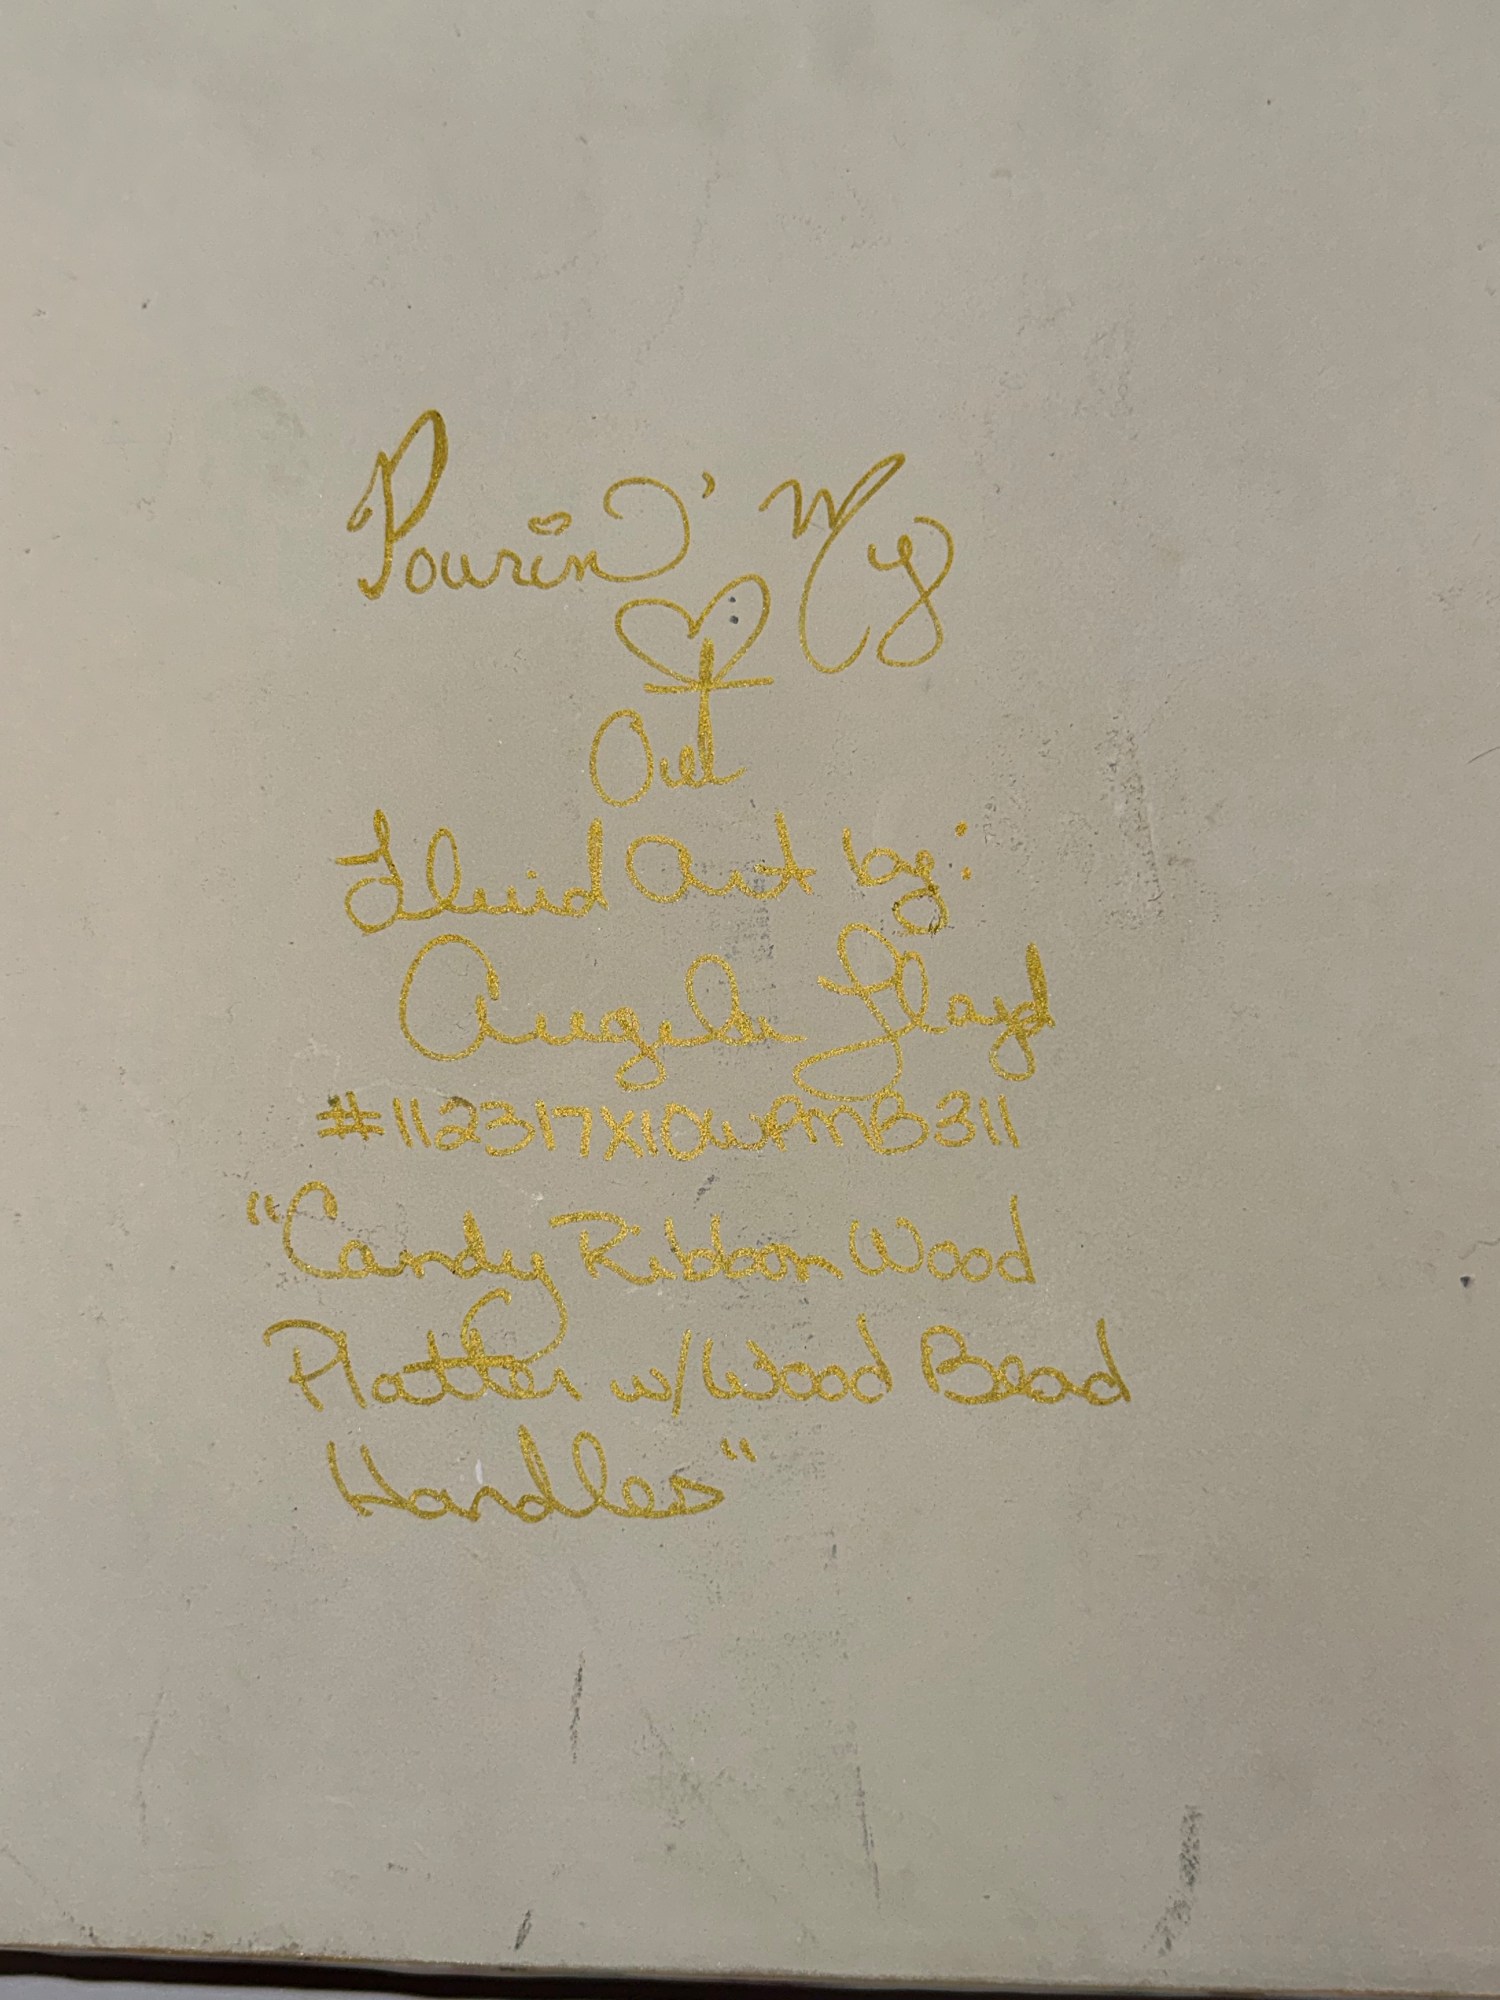 Pourin' My
♡
Out
Fluid Art by:
Angela Lloyd
#112317X10WPMB311
"Candy Ribbon Wood
Platter w/Wood Bead
Handles"